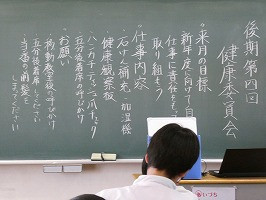 後期第四回
健康委員会
◦来月の目標
新年度に向けて自
仕事に責任をもっ
取り組もう
◦仕事内容
石けん補充、加湿機
健康観察板
ハンカチ・ティッシュ・爪チェック
五分後着席の呼びかけ
◦お願い
移動教室の呼びかけ
五分後着席してください